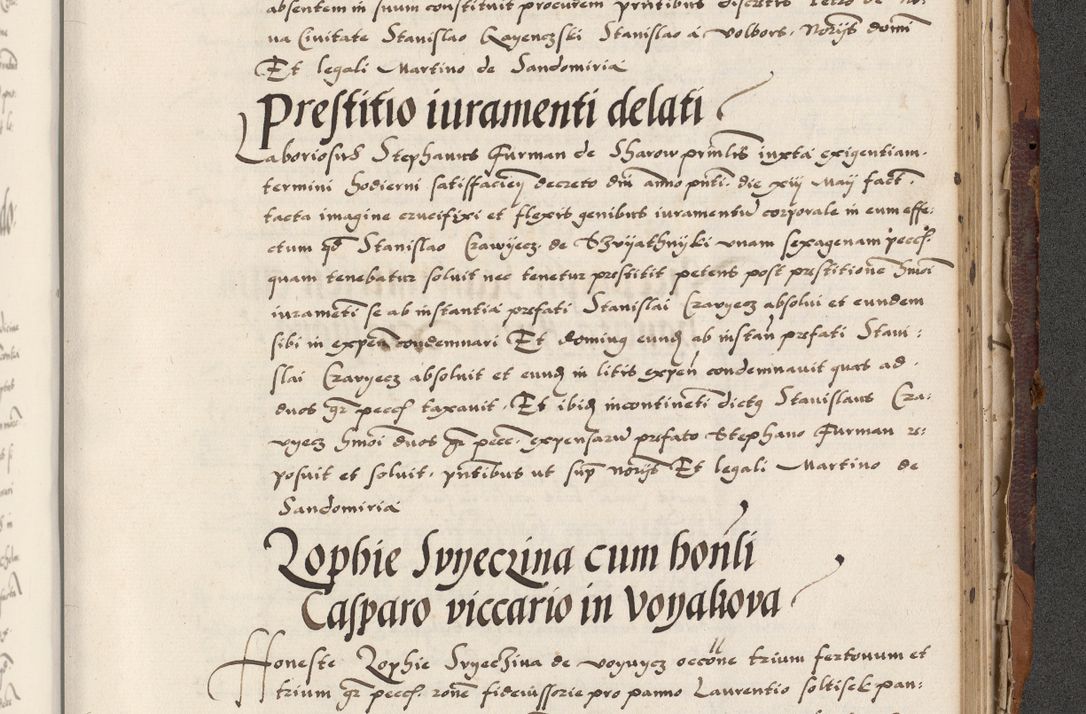 absentem in suum constituit procutem pñtibus discretis Petro de No-
ua Ciuitate Stanislao Rayenczski Stanislao a Volbors. Norijs domi
Et legali Martino de Sandomiria
Prestitio iuramenti delati
Laboriosus Stephanus Furman de Sharow prñlis iuxta exigentiam
termini hodierni satisfacieñ decreto dñi anno pnti. die xiij Maij fact.
tacta imagine crucifixi et flexis genibus iuramentũ corporale in eum effe:
ctum qđ Stanislao Crawyecz de
 vnam sexagenam peccſ.
quam tenebatur soluit nec tenetur prestitit petens post prestitionē hmoi
iuramēti se ab instantia prefati Stanislai Crawyecz absolui et eundem
sibi in expeñ condemnari Et Dominus eunđ ab instañ prefati Stani:
slai Crawyecz absoluit et eunđ in litis expeñ condemnauit quas ad
duos gr̃ peccſ taxauit. Et ibiđ incontinēti dictus Stanislaus Cra:
wyecz hmoi duos gr̃ pecc. expensarũ prefato Stephano Furman re:
posuit et soluit. pñtibus ut sup̃ norijs Et legali Martino de
Sandomiria
Zophie Svyeczina cum honñli
Casparo viccario in Voynahova
Honeste Zophie Svyeczina de voynycz occõne trium fertonum et
trium gr̃ peccſ. ronē fideiussorie pro panno Laurentio soltisek pan: